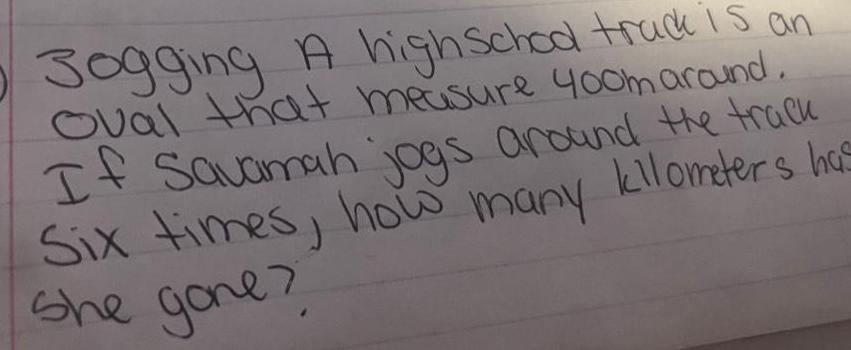 Jogging A highschool track is an
oval that measure 400m around.
If Savannah jogs around the track
Six times, how many kilometers has
she gone?